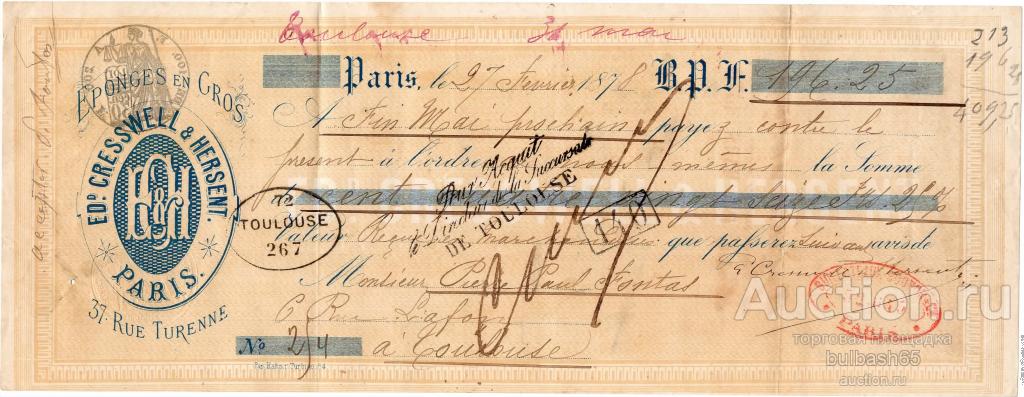 Toulouse 31 mai
213
196 25
409 25
à accepter
EPONGES EN GROS
EDD. CRESSWELL & HERSENT.
PARIS.
37. RUE TURENNE
Paris, le 27 Février 1878 B.P.F. 196.25
A Fin Mai prochain payez contre le
présent à l'ordre nous mêmes la Somme
de cent vingt seize Frs 25
Valeur Reçue en marchandises que passerez suivant avis de
Monsieur Pierre Paul Fontas
6 Rue Lafon
à Toulouse
No 24
TOULOUSE
267
Pour Acquit
Le Directeur de la Succursale
DE TOULOUSE
PARIS
Auction.ru
торговая площадка
bulbash65
auction.ru